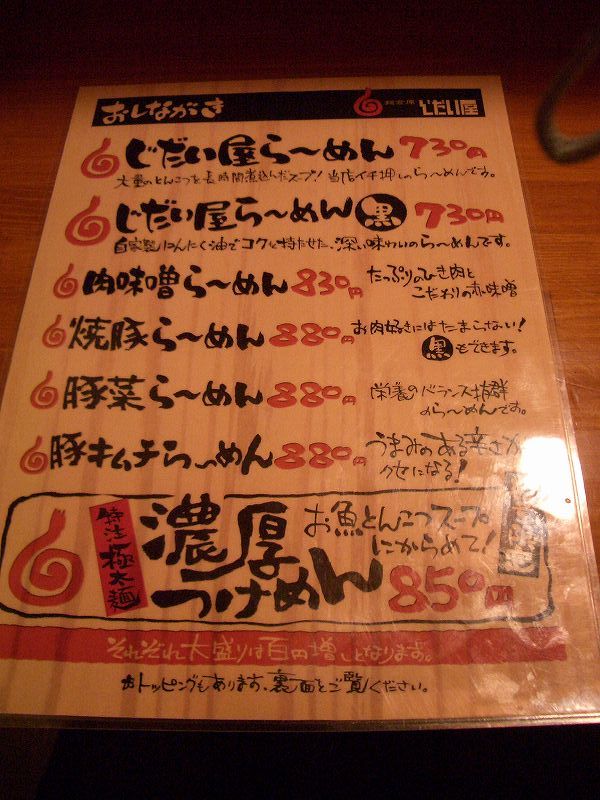 おしながき
じだい屋
じだい屋ら〜めん 730円
大量のとんこつを長時間煮込んだスープ!当店イチ押しのら〜めんです。
じだい屋ら〜めん 黒 730円
自家製にんにく油でコクを持たせた、深い味わいのら〜めんです。
肉味噌ら〜めん 830円
たっぷりのひき肉と
こだわりの赤味噌
焼豚ら〜めん 880円
お肉好きにはたまらない!
黒もできます。
豚菜ら〜めん 880円
栄養のバランス抜群
のら〜めんです。
豚キムチら〜めん 880円
うまみのある辛さが
クセになる!
特注極太麺
濃厚
つけめん
お魚とんこつスープ
にからめて!
850円
それぞれ大盛りは百円増しとなります。
おトッピングもあります、裏面をご覧ください。